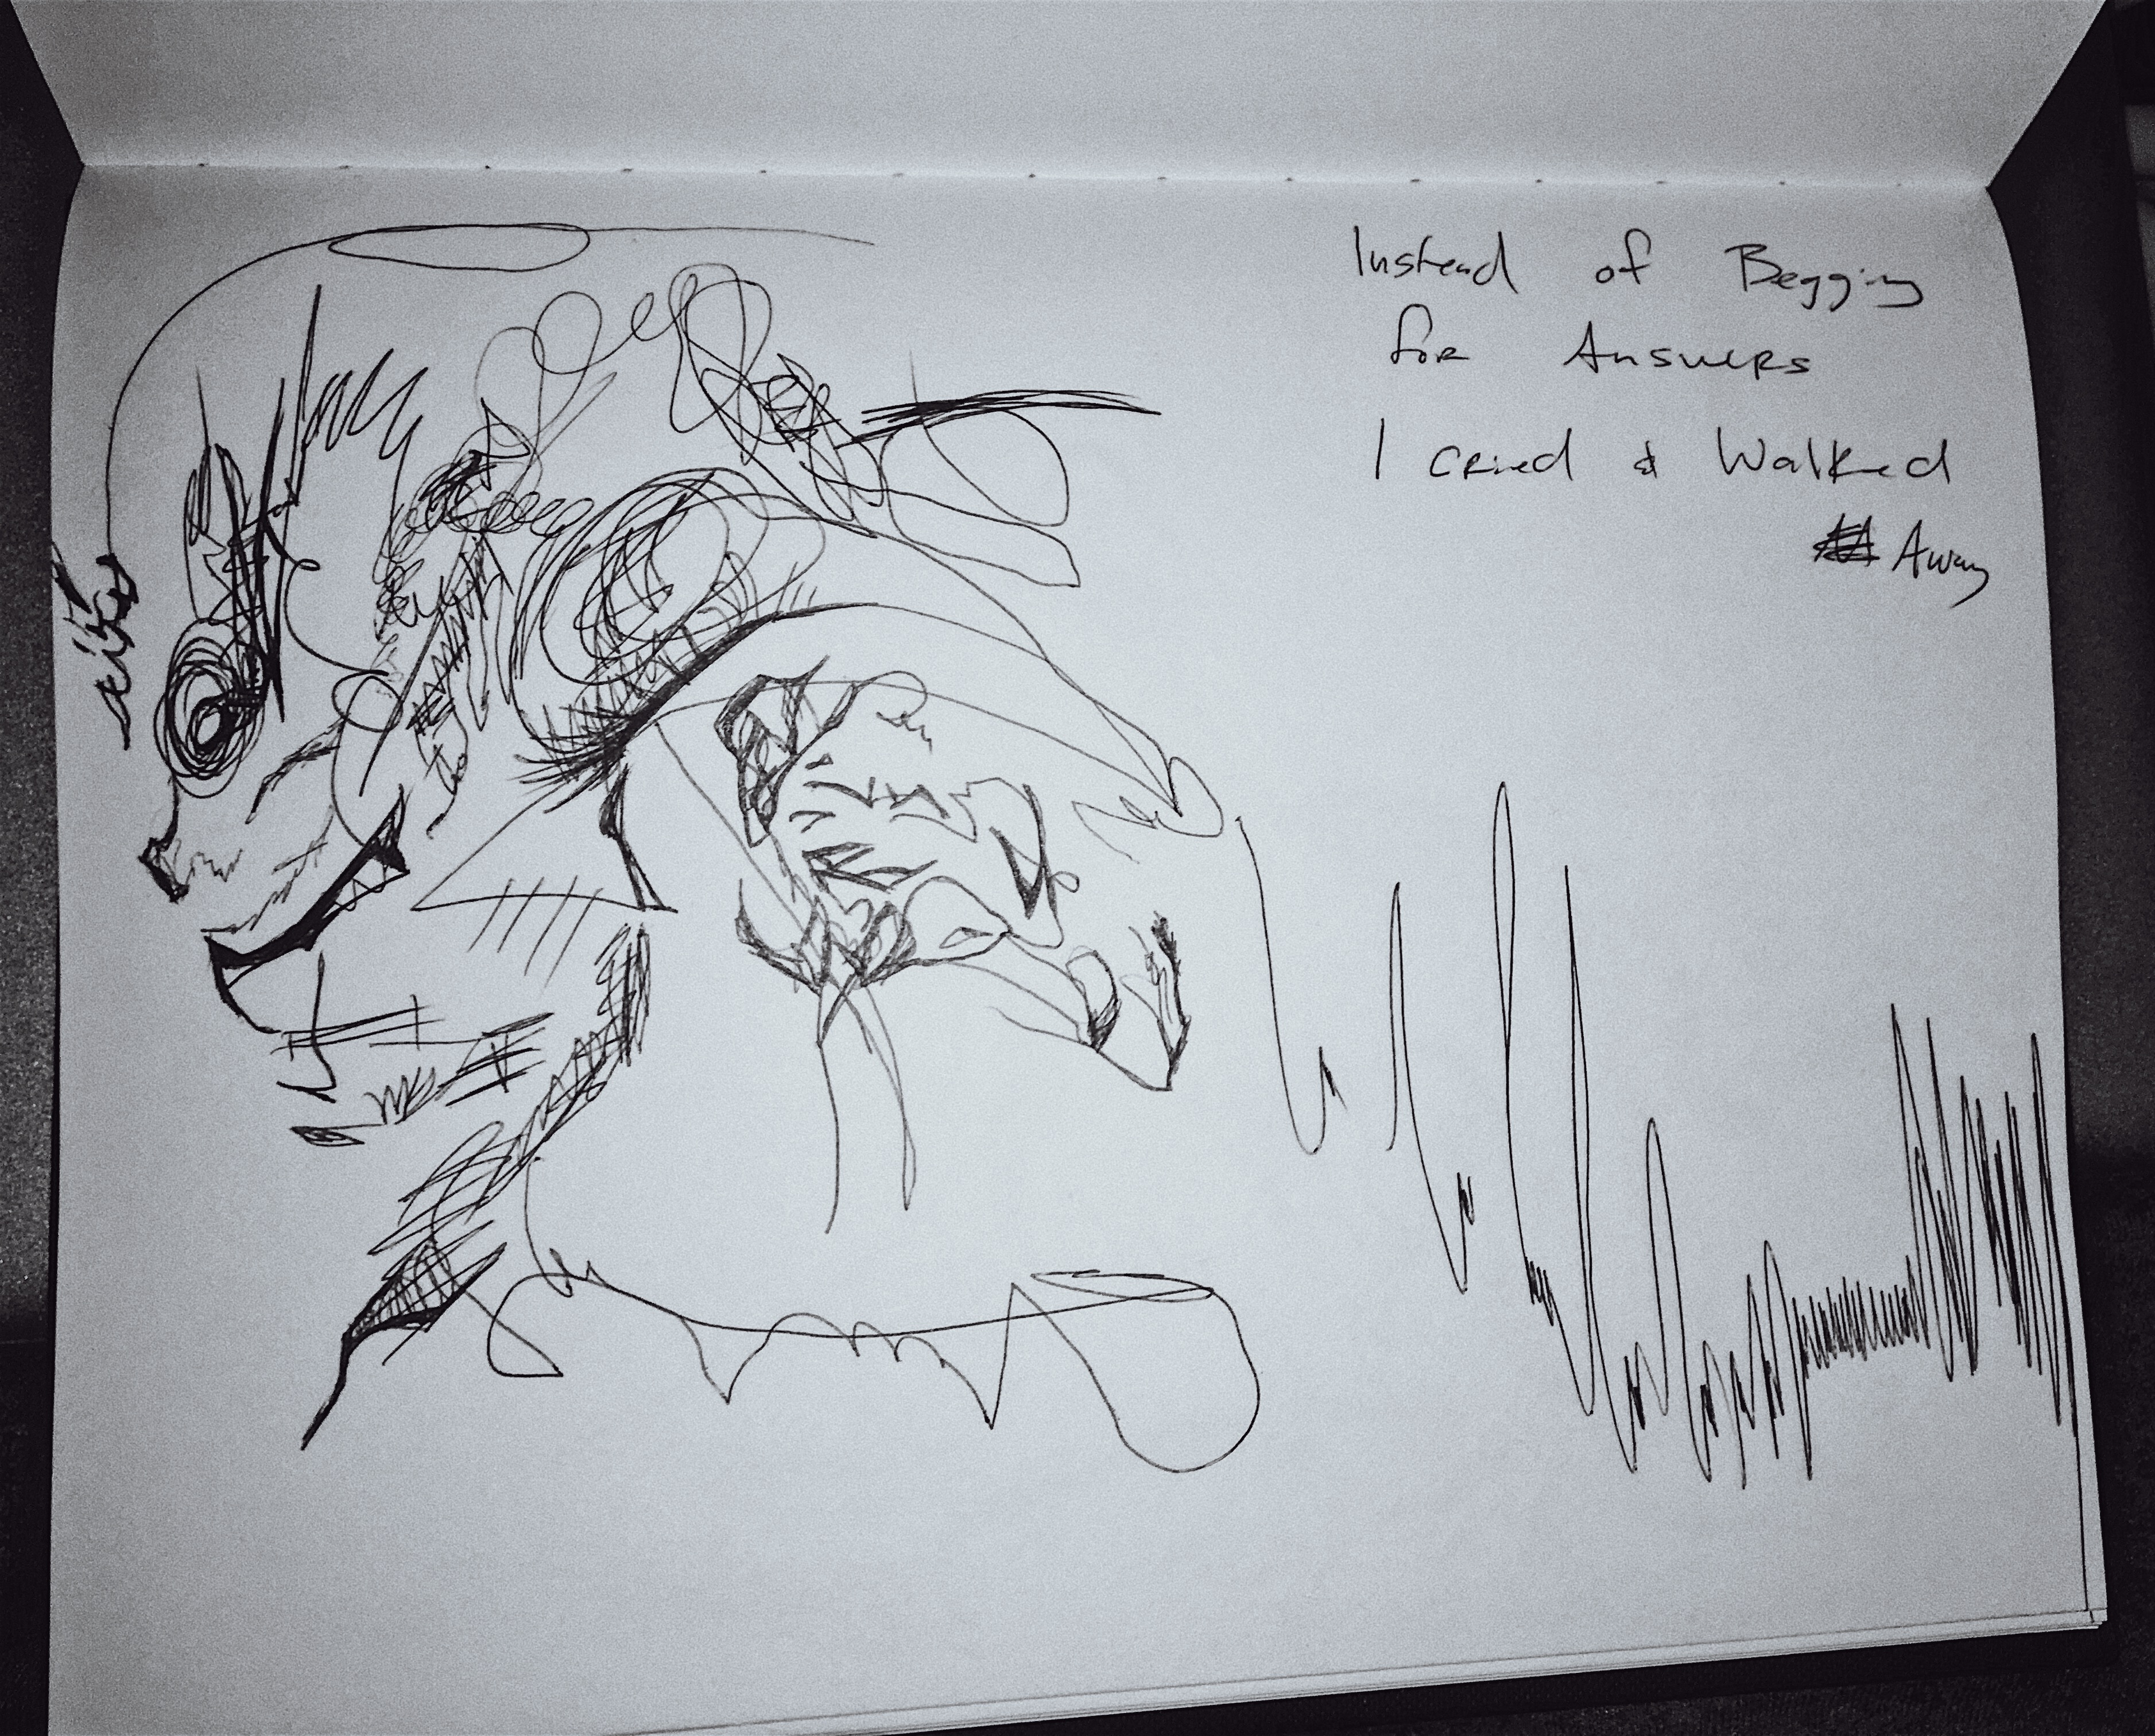 Instead of Begging
for Answers
I cried & Walked
Away